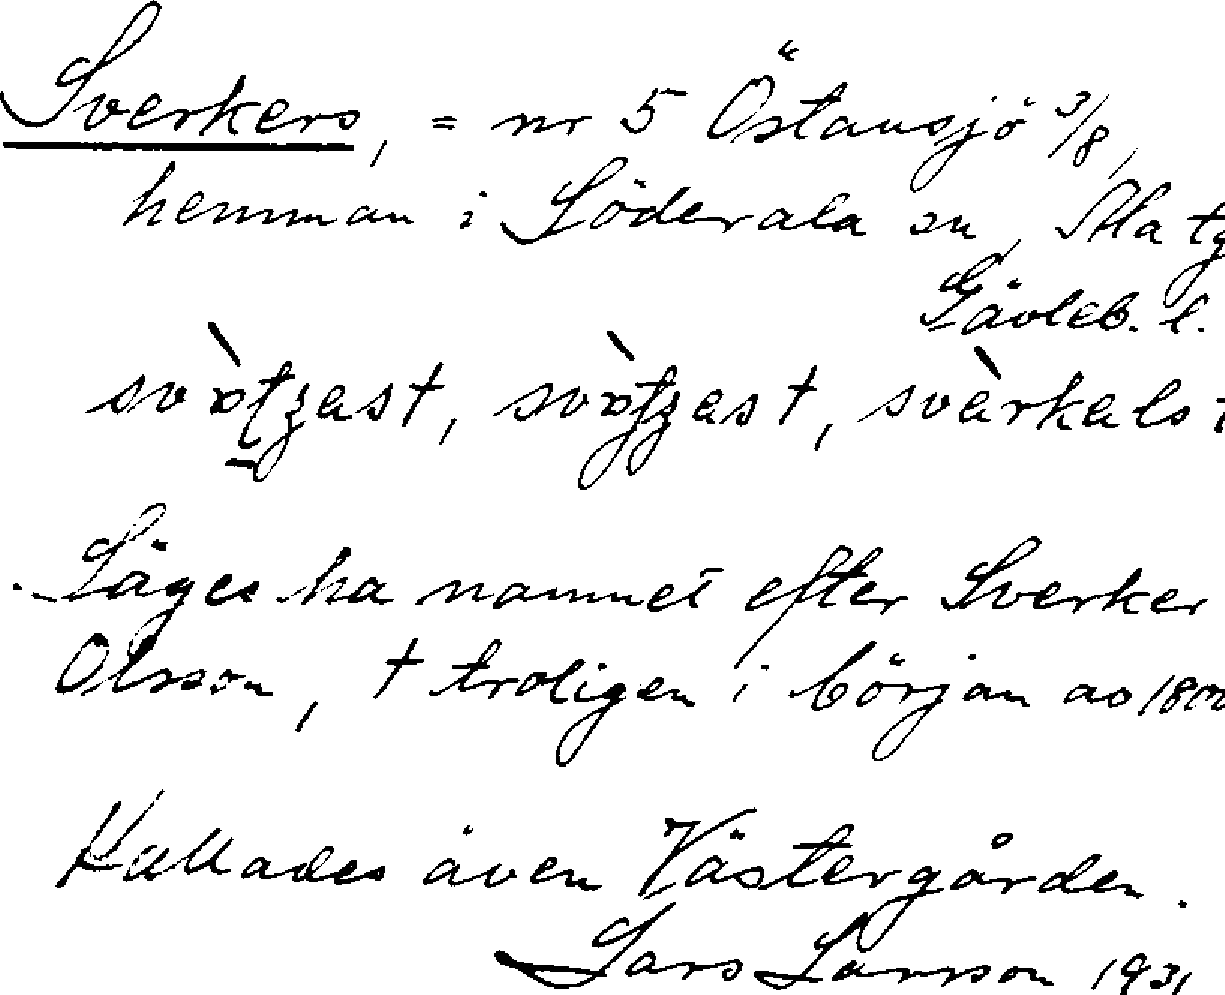 Sverkers, = nr 5 Östansjö 3/8
hemman i Söderala sn,
Gävleb. l.
Säges ha namnet efter Sverker
Olsson, † troligen i början av
Kallades även Västergården.
Lars Larsson 1931